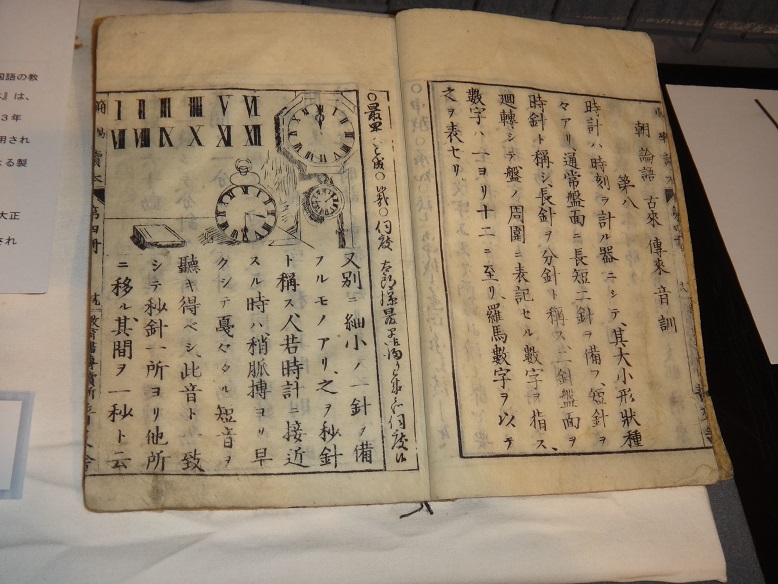 朝 論語 古來 傳來 音訓
第八
時計ハ時刻ヲ計ル器ニシテ、其大小形狀種
々アリ、通常盤面ニ長短二針ヲ備フ、短針ヲ
時針ト稱シ、長針ヲ分針ト稱ス、二針盤面ヲ
廻轉シテ盤ノ周圍ニ表記セル數字ヲ指ス、
數字ハ一ヨリ十二ニ至リ、羅馬數字ヲ以テ
之ヲ表セリ、
I II III IIII V VI
VII VIII IX X XI XII
又別ニ細小ノ一針ノ備
フルモノアリ、之ヲ秒針
ト稱ス、人若時計ニ接近
スル時ハ稍脈搏ヨリ早
クシテ戞々タル短音ヲ
聽キ得ベシ、此音ト一致
シテ秒針一所ヨリ他所
ニ移ル、其間ヲ一秒ト云
讀本 第四冊
国語の教
』は、
3年
用され
よる製
大正
され